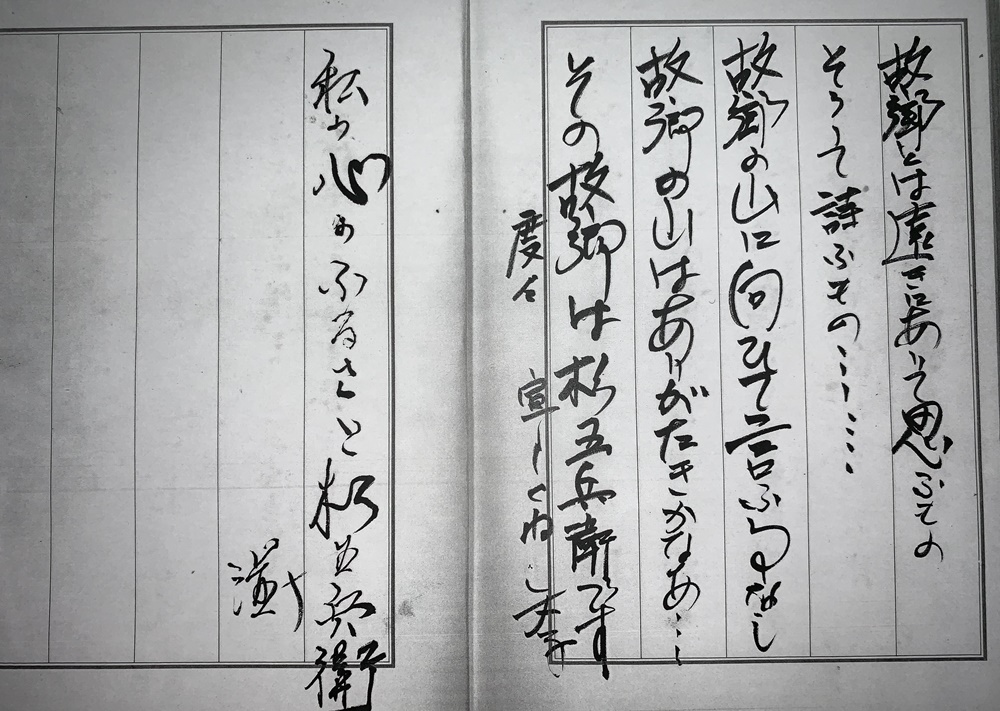 故郷とは遠きにありて思ふもの
そうして詩ふもの……
故郷の山に向ひて言ふ事なし
故郷の山はありがたきかなあ…
その故郷は杉五兵衛です
度々 宣しくね
私の心のふるさと杉五兵衛